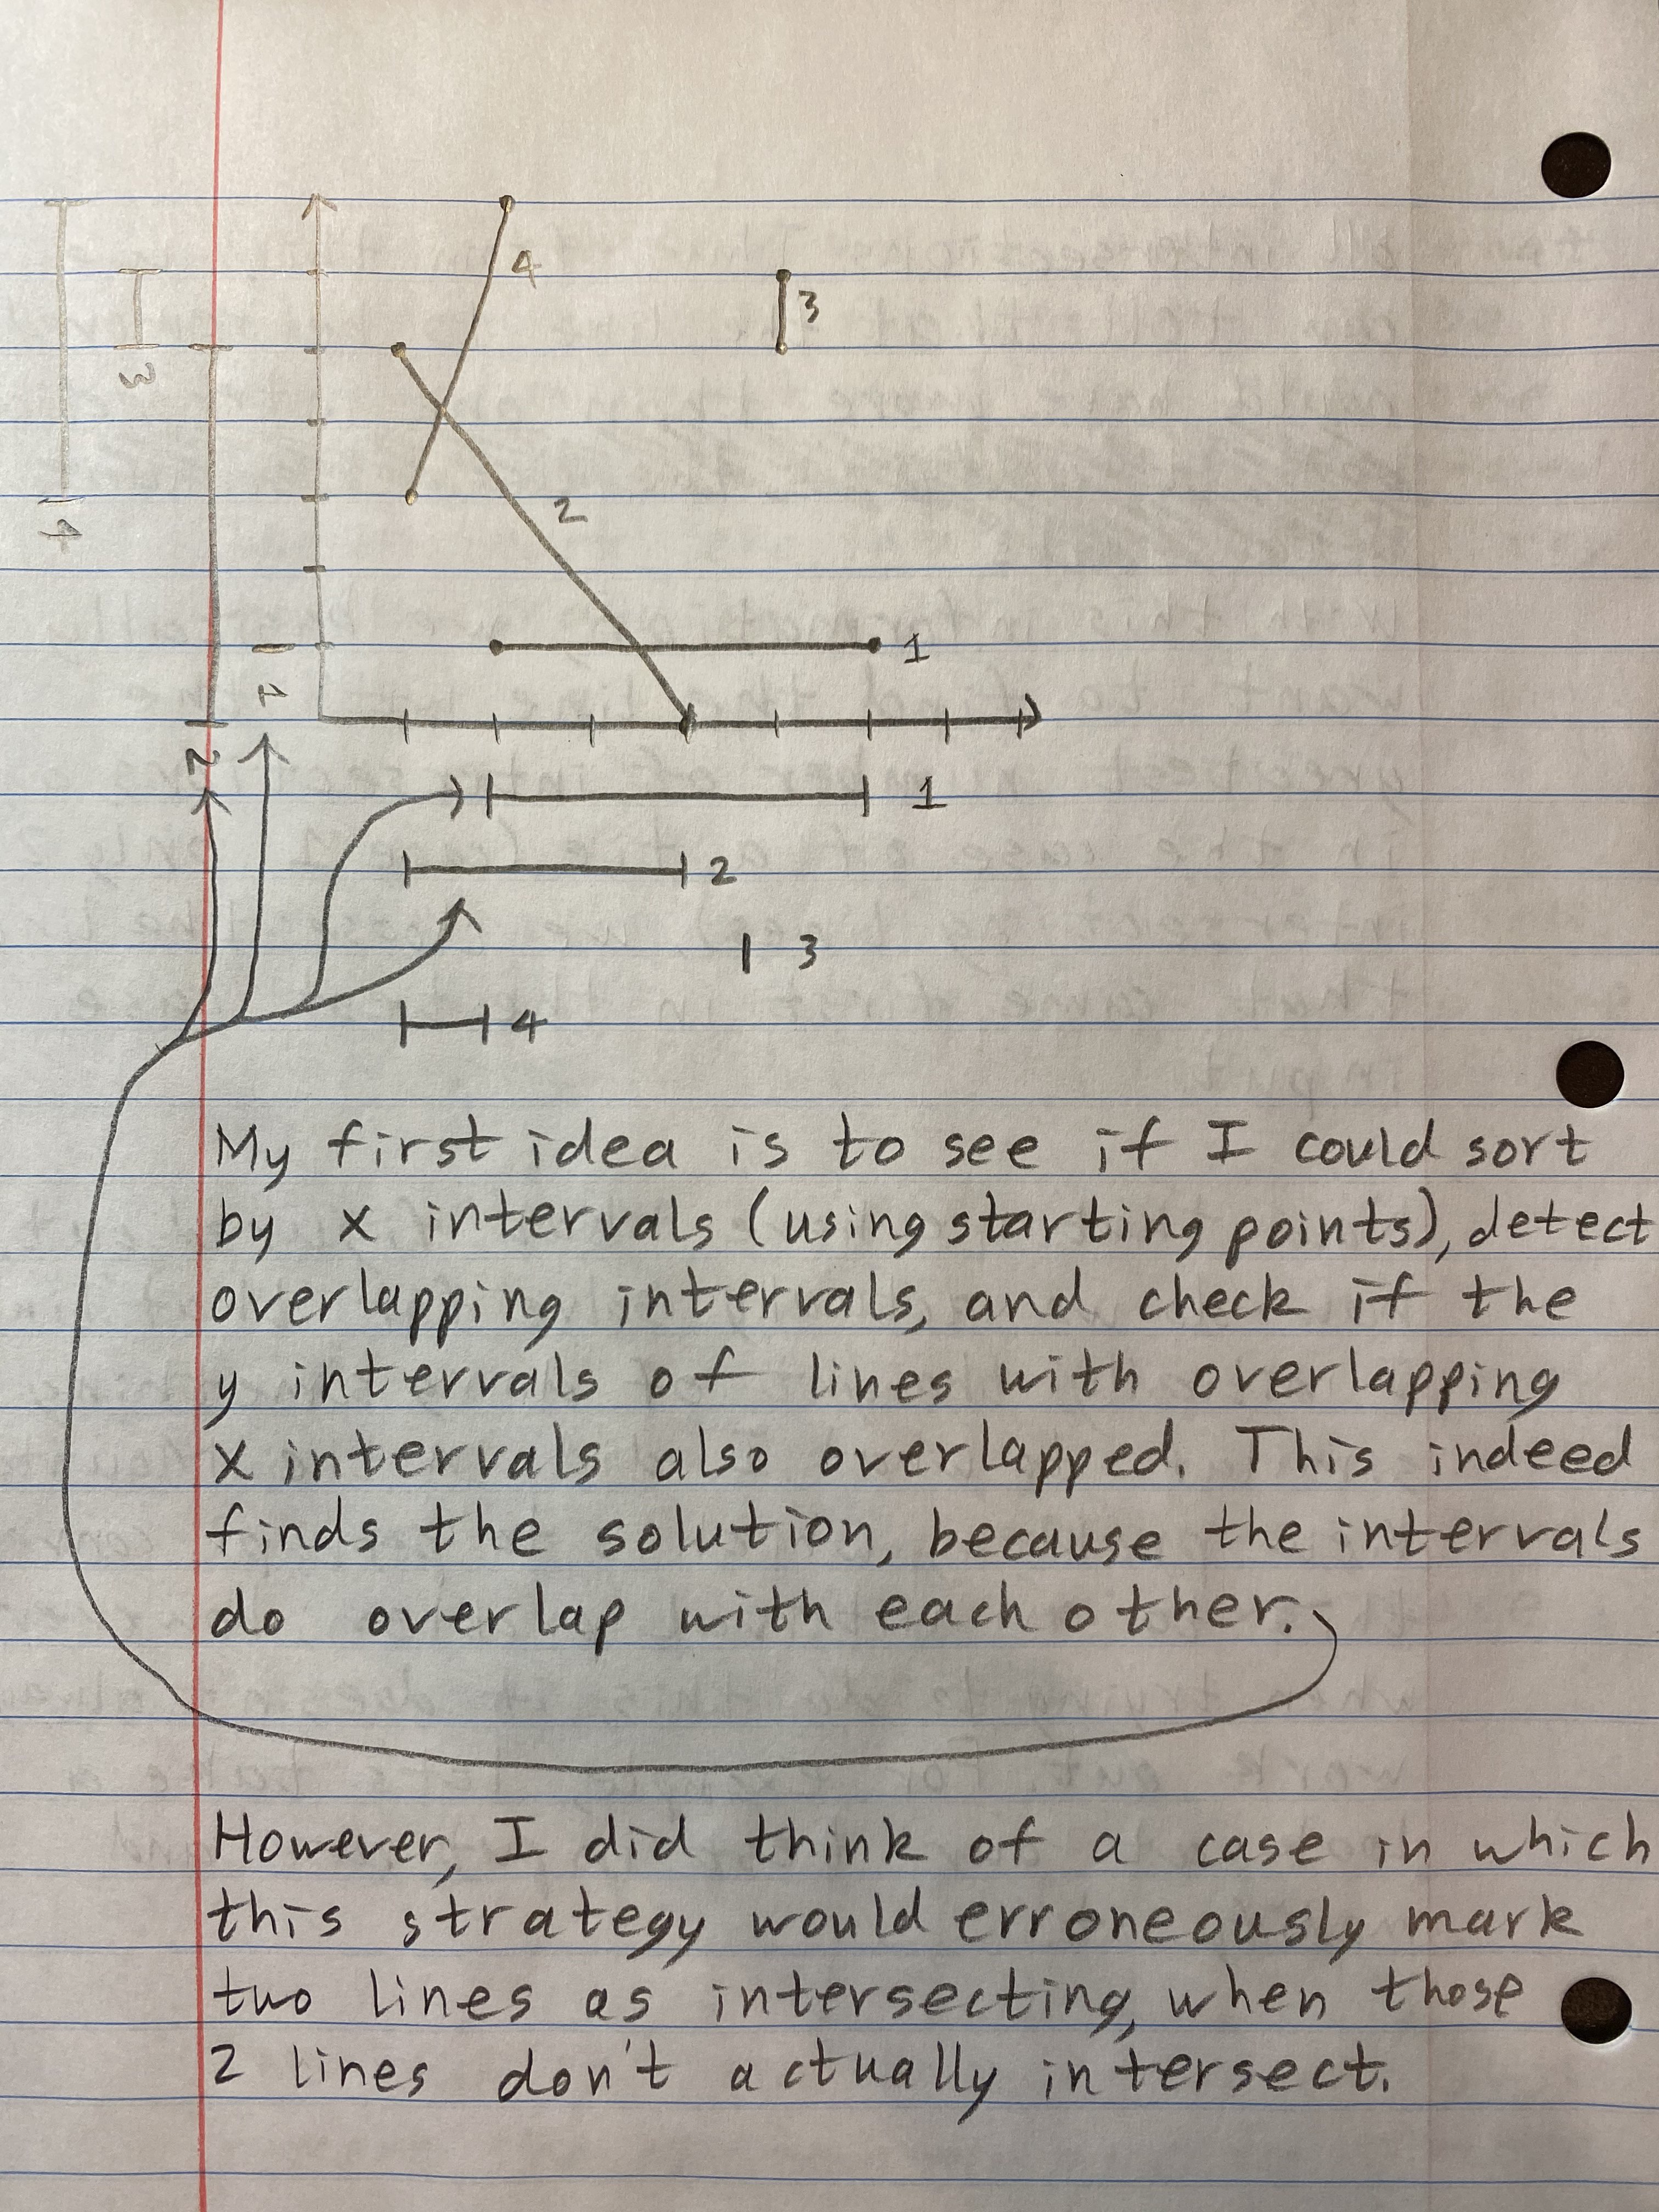 4
3
3
4
2
1
1
2
1
2
3
4
My first idea is to see if I could sort
by x intervals (using starting points), detect
overlapping intervals, and check if the
y intervals of lines with overlapping
x intervals also overlapped. This indeed
finds the solution, because the intervals
do overlap with each other.
However, I did think of a case in which
this strategy would erroneously mark
two lines as intersecting, when those
2 lines don't actually intersect.